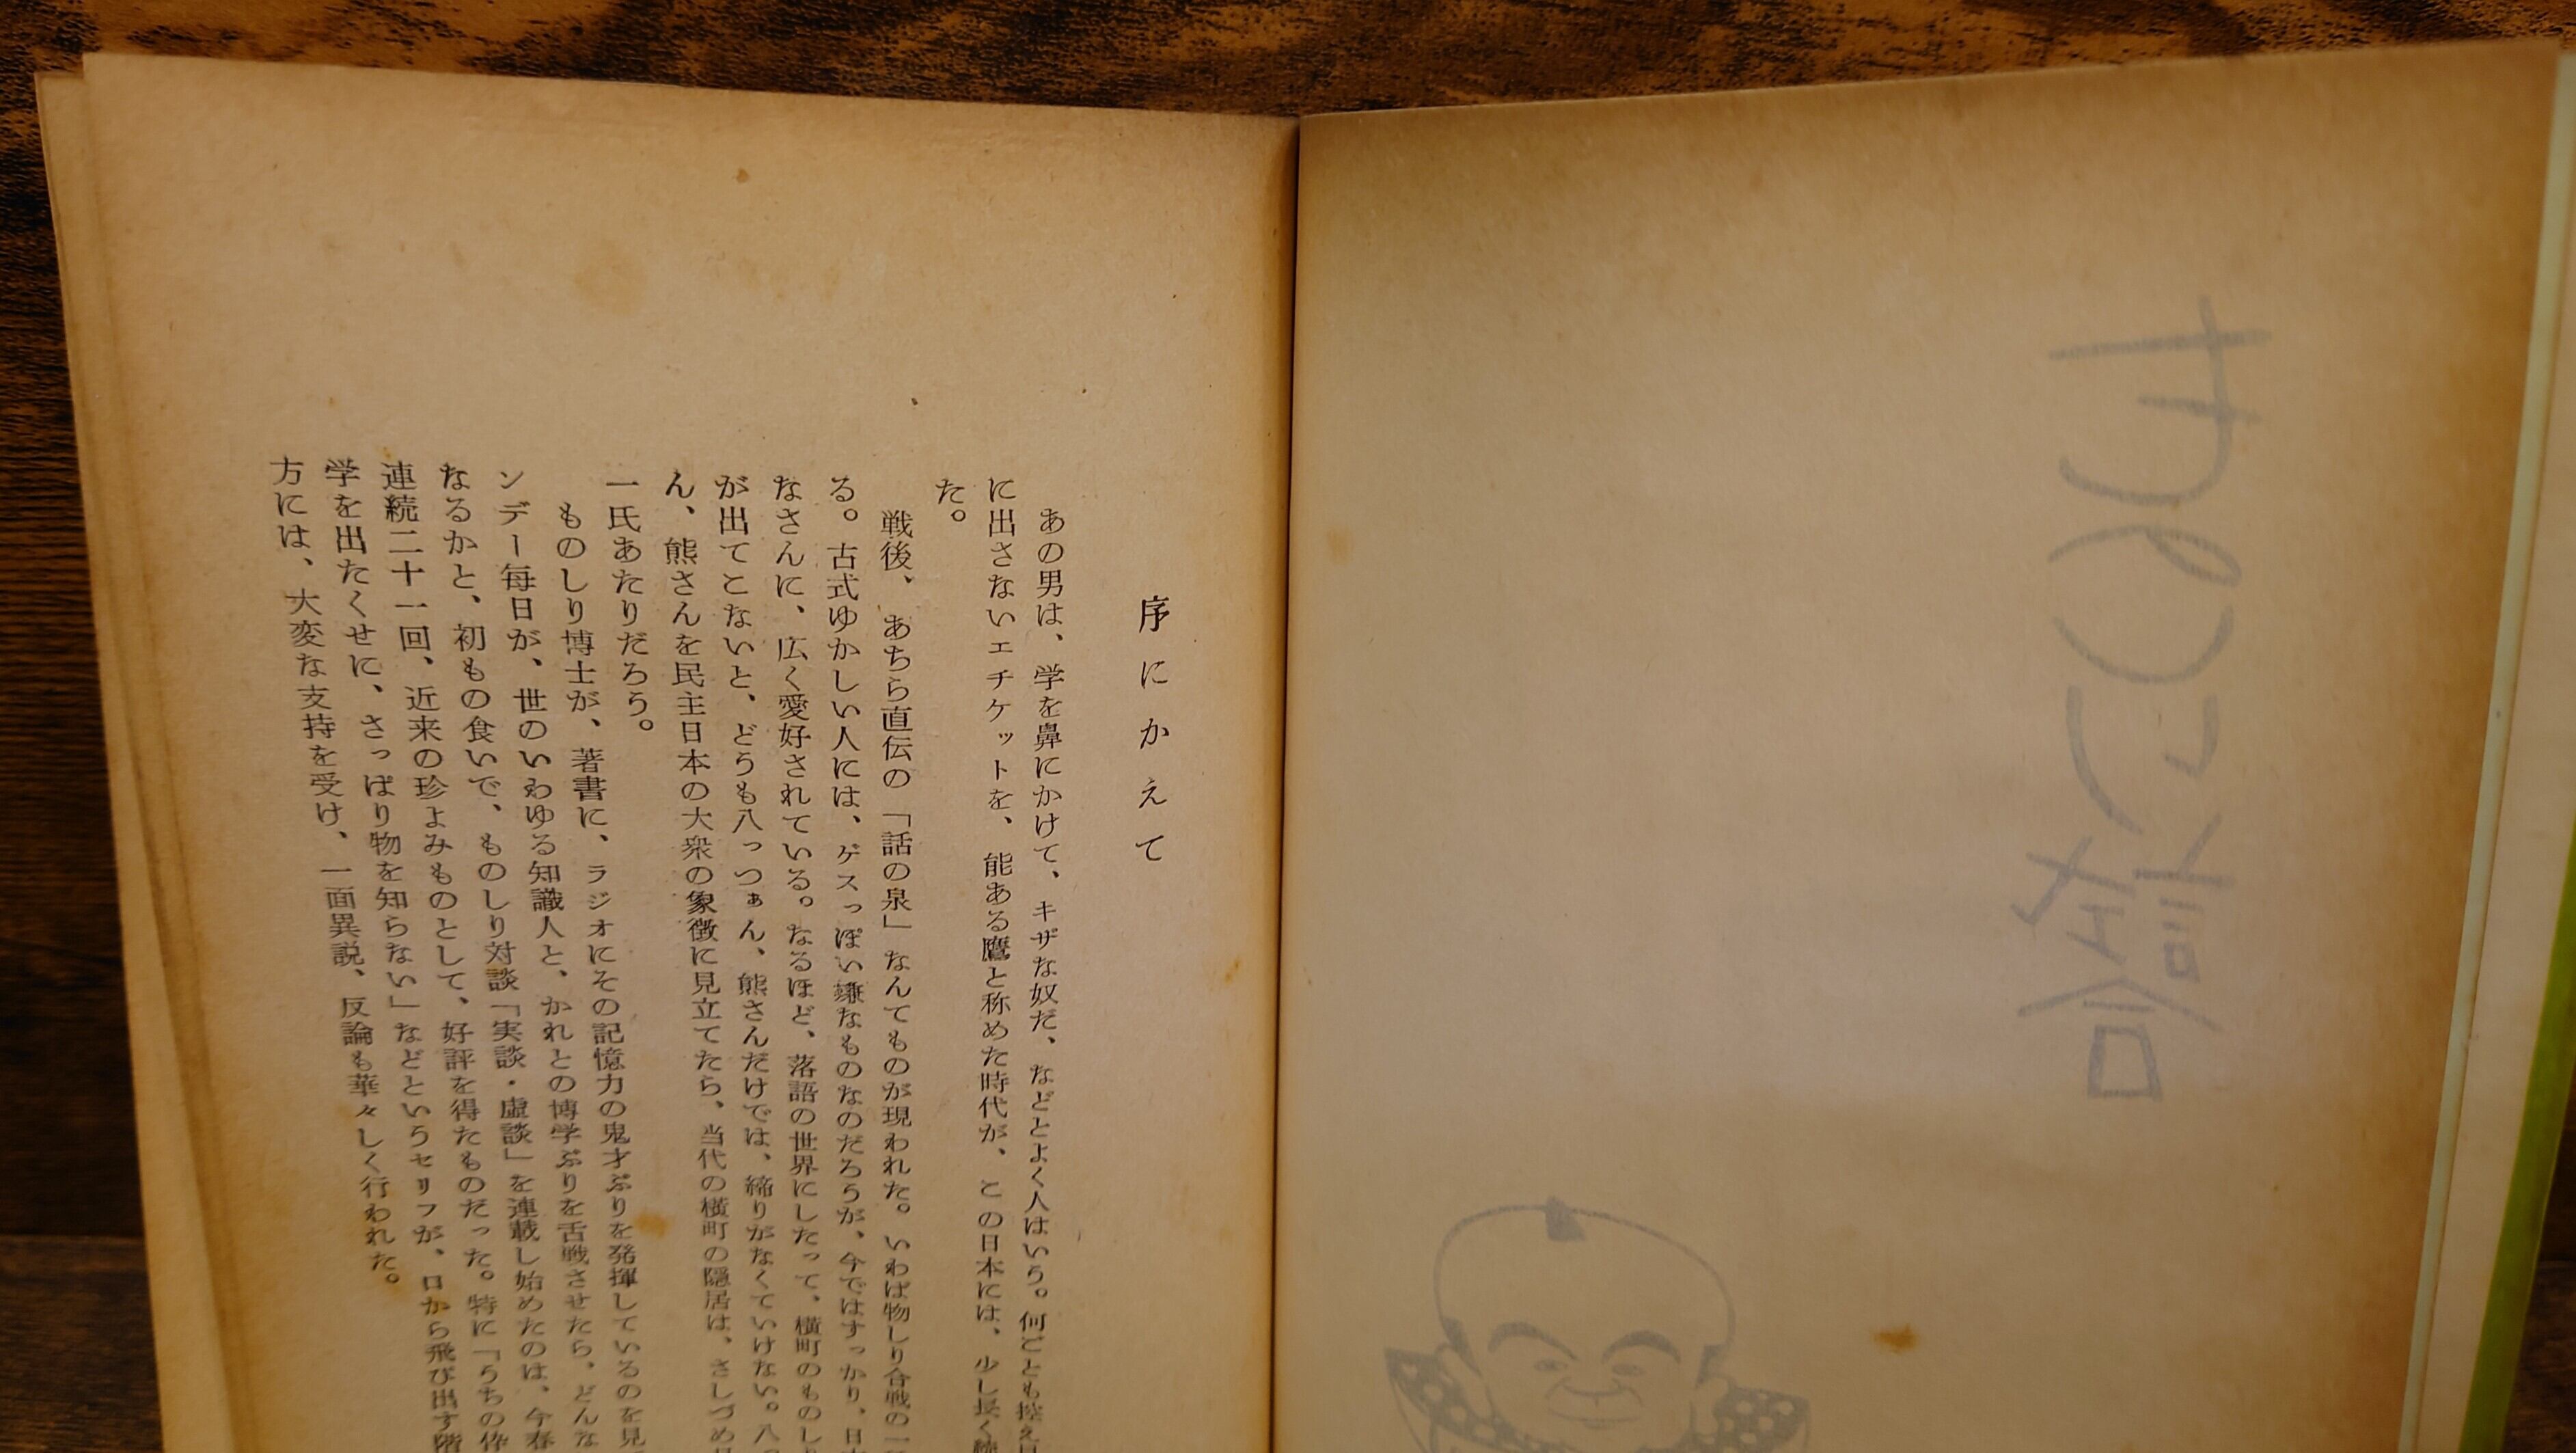 序にかえて
あの男は、学を鼻にかけて、キザな奴だ、などとよく人はいう。何ごとも控え
に出さないエチケットを、能ある鷹と称めた時代が、この日本には、少し長く
た。
戦後、あちら直伝の「話の泉」なんてものが現われた。いわば物しり合戦の一
る。古式ゆかしい人には、ゲスっぽい嫌なものなのだろうが、今ではすっかり、日
なさんに、広く愛好されている。なるほど、落語の世界にしたって、横町のものし
が出てこないと、どうも八っつぁん、熊さんだけでは、締りがなくていけない。八
ん、熊さんを民主日本の大衆の象徴に見立てたら、当代の横町の隠居は、さしづめ
一氏あたりだろう。
ものしり博士が、著書に、ラジオにその記憶力の鬼才ぶりを発揮しているのを見
ンデー毎日が、世のいわゆる知識人と、かれとの博学ぶりを舌戦させたら、どんな
なるかと、初もの食いで、ものしり対談「実談・虚談」を連載し始めたのは、今春
連続二十一回、近来の珍よみものとして、好評を得たものだった。特に「うちの伜
学を出たくせに、さっぱり物を知らない」などというセリフが、口から飛び出す階
方には、大変な支持を受け、一面異説、反論も華々しく行われた。
ものしり